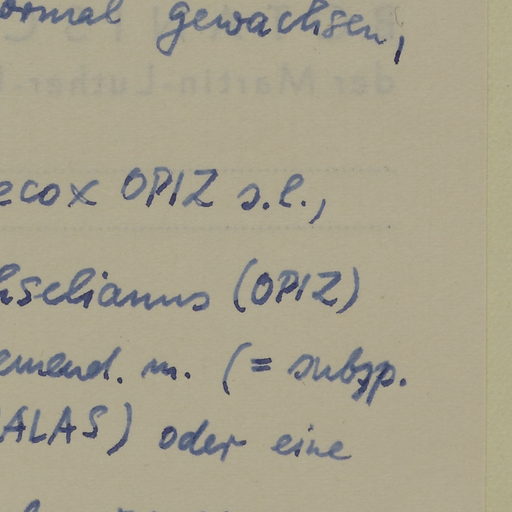 ormal gewachsen,
der Martin-Luther-
ecox OPIZ s.l.,
hselianus (OPIZ)
emend. m. (= subsp.
ALAS) oder eine